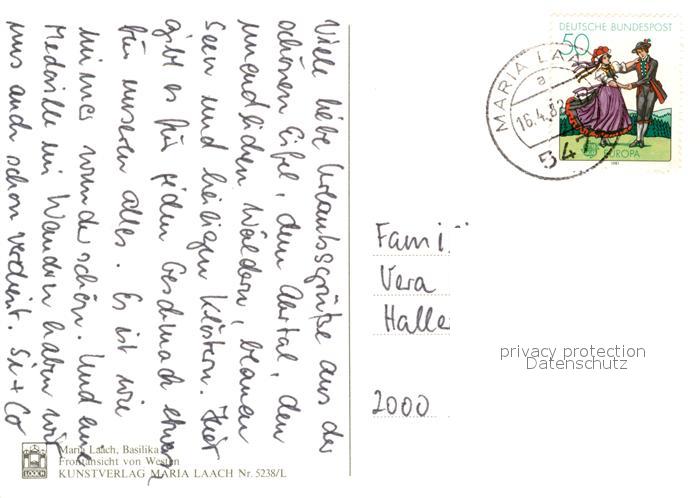 Viele liebe Urlaubsgrüße aus der
schönen Eifel, dem Ahrtal, den
unendlichen Wäldern, blauen
Seen und heiligen Klöstern. Hier
gibt es für jeden Geschmack etwas
für unseren alles. Es ist wie
immer wunderschön. Und eine
Medaille im Wandern haben wir
uns auch schon verdient. Si + Co
Maria Laach, Basilika
Frontansicht von Westen
KUNSTVERLAG MARIA LAACH Nr. 5238/L
MARIA LAA
a
16.4.82
54
DEUTSCHE BUNDESPOST
50
EUROPA
1981
Fami
Vera
Halle
2000
privacy protection
Datenschutz